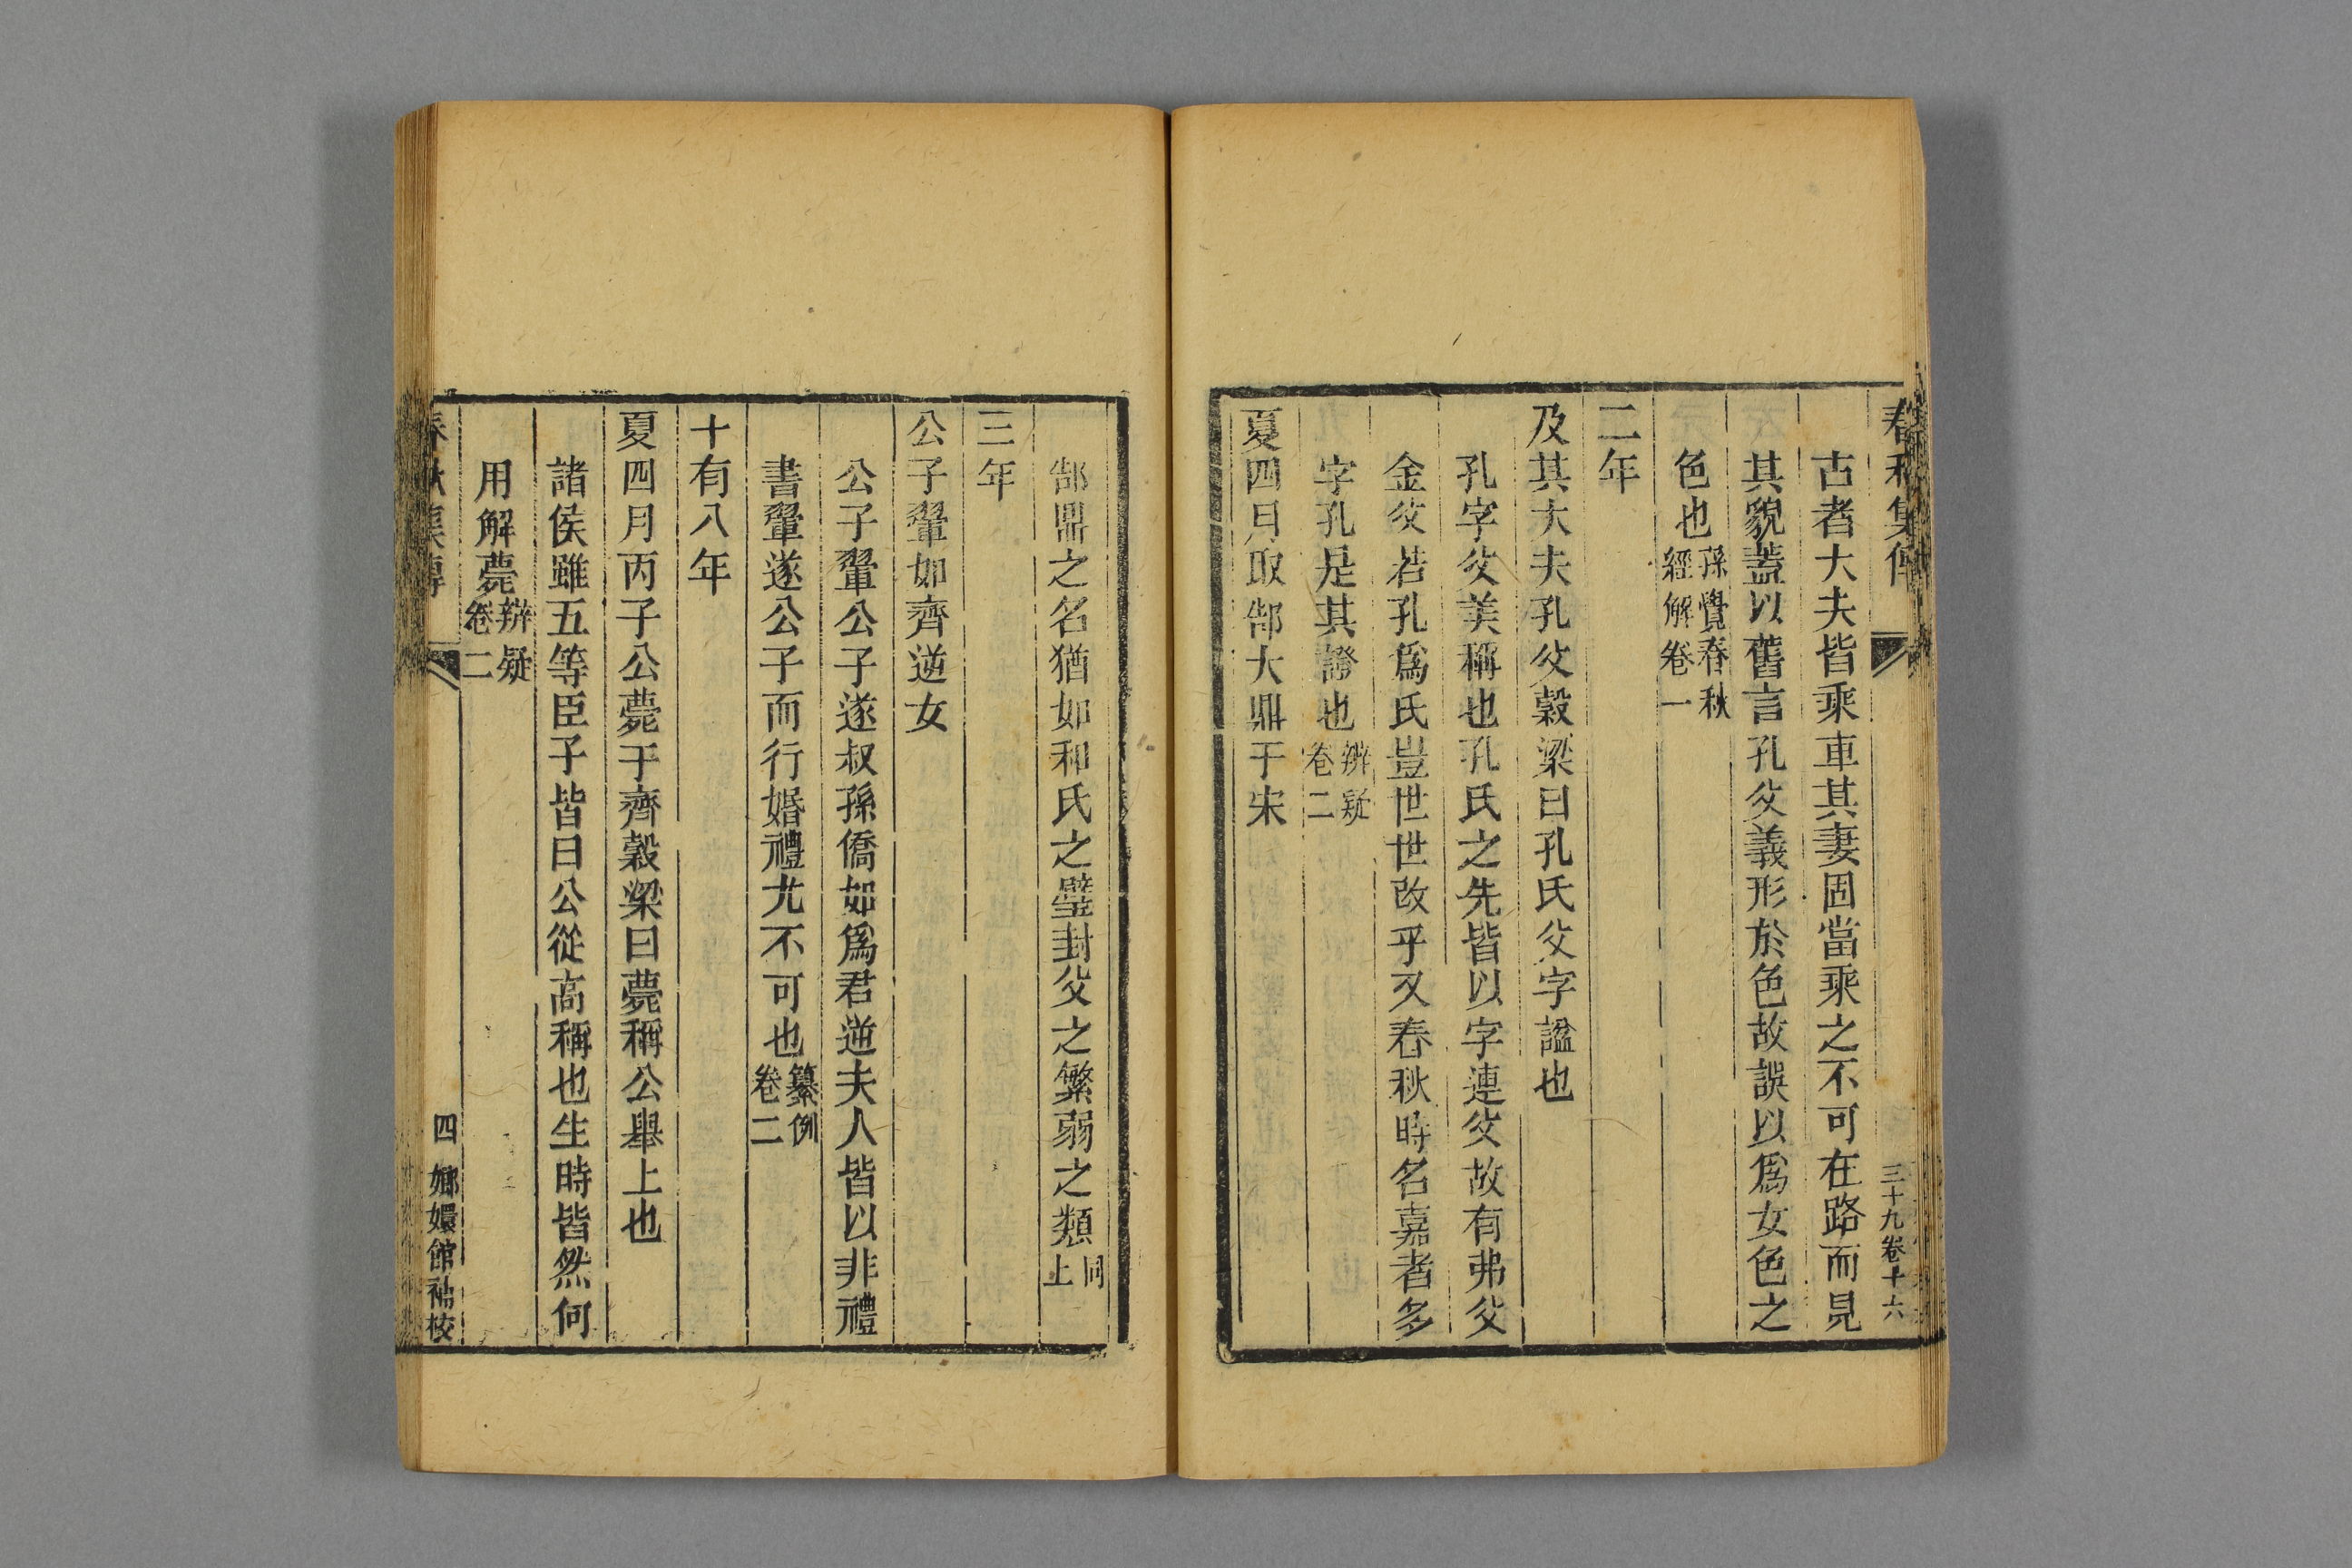 春秋集傳
三十九卷十六
古者大夫皆乘車其妻固當乘之不可在路而見
其貌蓋以舊言孔父義形於色故誤以爲女色之
色也孫覺春秋經解卷一
二年
及其大夫孔父穀梁曰孔氏父字諡也
孔字父美稱也孔氏之先皆以字連父故有弗父
金父若孔爲氏豈世世改乎又春秋時名嘉者多
字孔是其證也辨疑卷二
夏四月取郜大鼎于宋
郜鼎之名猶如和氏之璧封父之繁弱之類同上
三年
公子翬如齊逆女
公子翬公子遂叔孫僑如爲君逆夫人皆以非禮
書翬遂公子而行婚禮尤不可也纂例卷二
十有八年
夏四月丙子公薨于齊穀梁曰薨稱公舉上也
諸侯雖五等臣子皆曰公從高稱也生時皆然何
用解薨辨疑卷二
春秋集傳
四
嫏嬛館補校